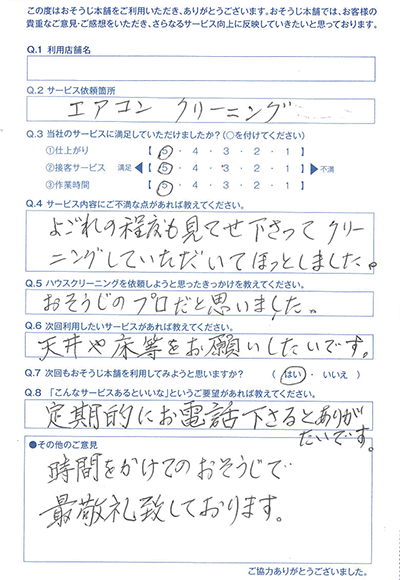 この度はおそうじ本舗をご利用いただき、ありがとうございます。おそうじ本舗では、お客様の
貴重なご意見・ご感想をいただき、さらなるサービス向上に反映していきたいと思っております。
Q.1 利用店舗名
Q.2 サービス依頼箇所
エアコン クリーニング
Q.3 当社のサービスに満足していただけましたか?(○を付けてください)
①仕上がり 【 5 ・ 4 ・ 3 ・ 2 ・ 1 】
②接客サービス 満足 ◀【 5 ・ 4 ・ 3 ・ 2 ・ 1 】▶ 不満
③作業時間 【 5 ・ 4 ・ 3 ・ 2 ・ 1 】
Q.4 サービス内容にご不満な点があれば教えてください。
よごれの程度も見てせ下さって クリー
ニングしていただいてほっとしました。
Q.5 ハウスクリーニングを依頼しようと思ったきっかけを教えてください。
おそうじのプロだと思いました。
Q.6 次回利用したいサービスがあれば教えてください。
天井や床等をお願いしたいです。
Q.7 次回もおそうじ本舗を利用してみようと思いますか? ( はい ・ いいえ )
Q.8 「こんなサービスあるといいな」というご要望があれば教えてください。
定期的にお電話下さるとありが
たいです。
●その他のご意見
時間をかけてのおそうじで
最敬礼致しております。
ご協力ありがとうございました。